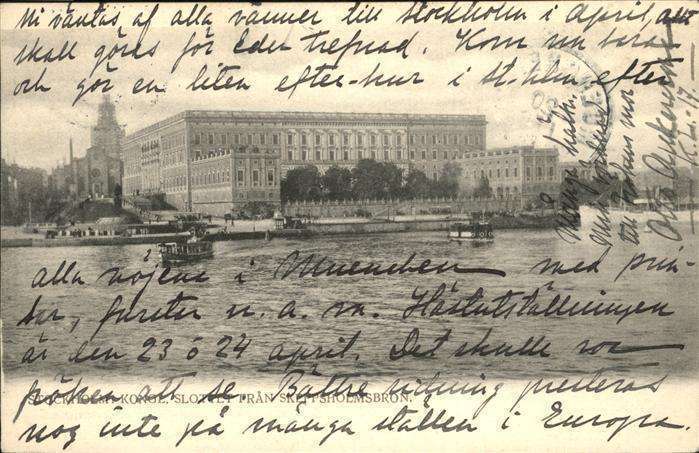 Ni väntas af alla vänner till Stockholm i April, allt
skall göras för Eder trefnad. Kom nu bara
och gör en liten efter-kur i St-hlm efter
alla nöjena i Muenchen med prin-
sar, furster m. a. m. Hästutställningen
är den 23 à 24 april. Det skulle roa
fröken att se. Bättre ridning presteras
nog inte på många ställen i Europa.
STOCKHOLM. KONGL. SLOTTET FRÅN SKEPPSHOLMSBRON.
Många